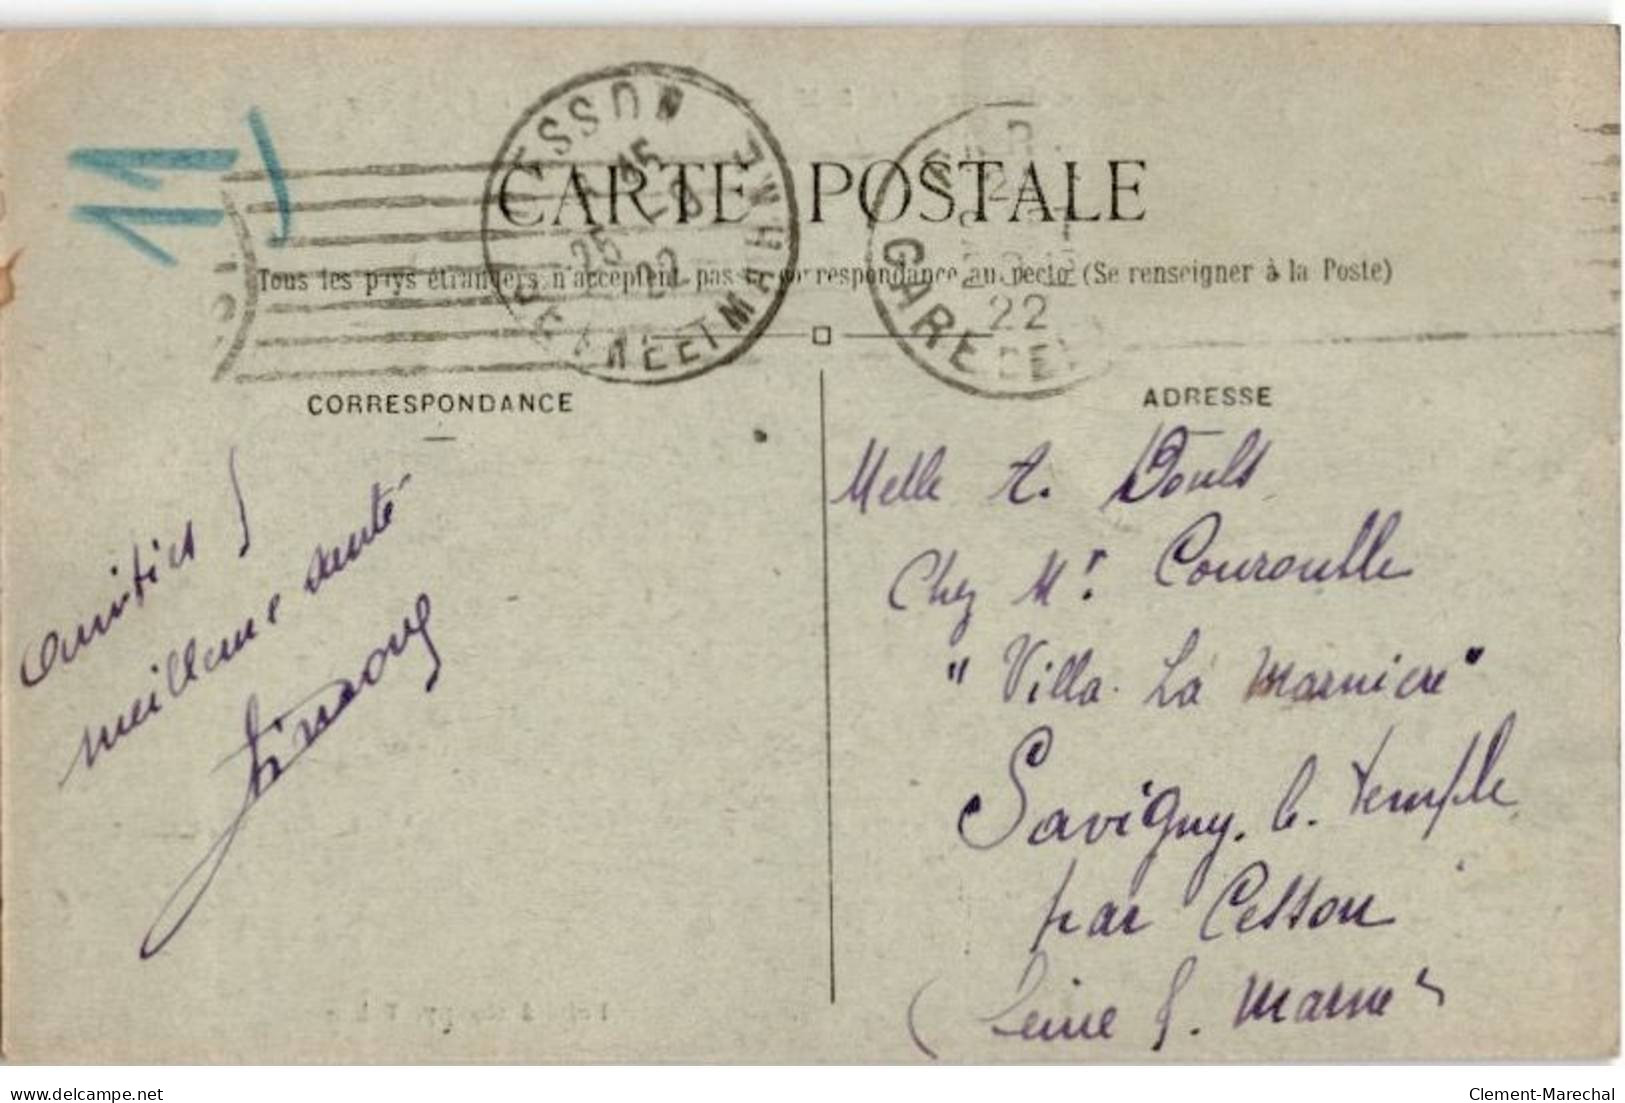 11)
CESSON
15
25 -8
22
SEINE ET MARNE
PARIS
22
GARE DE
CARTE POSTALE
Tous les pays étrangers n'acceptent pas la correspondance au recto (Se renseigner à la Poste)
CORRESPONDANCE
ADRESSE
amitiés &
meilleure santé
Melle A. Boults
Chez Mr. Courouble
"Villa La Marniere"
Savigny. le. Temple
par Cesson
(Seine &. Marne)
delcampe.net
Clement-Marechal